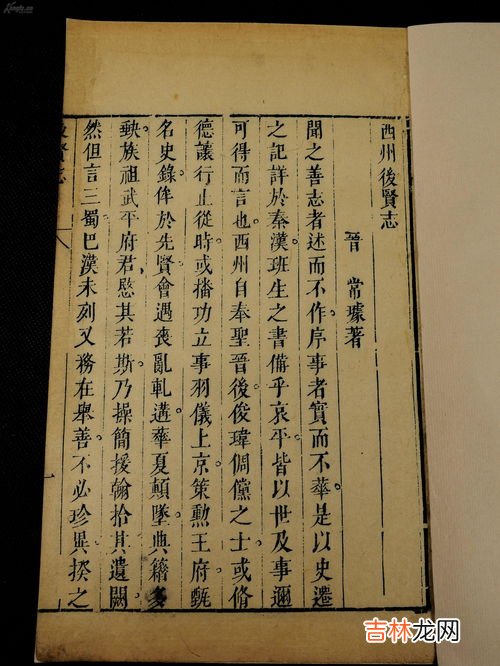 西州後賢志
晉 常璩著
聞之善志者述而不作序事者實而不華是以史遷
之記詳於秦漢班生之書備乎哀平皆以世及事邇
可得而言也西州自奉聖晉後俊瑋倜儻之士或脩
德讓行止從時或播功立事羽儀上京策勳王府甄
名史錄侔於先賢會遇喪亂軋遘華夏顛墜典籍多
缺族祖武平府君愍其若斯乃操簡援翰拾其遺闕
然但言三蜀巴漢未列又務在舉善不必珍異揆之
後賢志
一
Kongfz.cn
吉林龙网